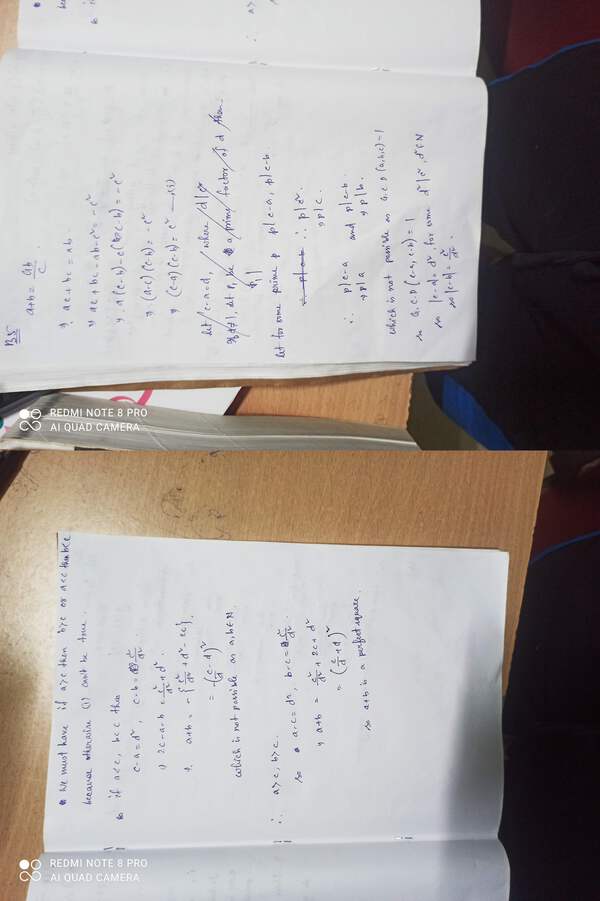 B5
a+b = ab/c
⇒ ac+bc = ab
⇒ ac+bc-ab-c² = -c²
⇒ a(c-b)-c(c-b) = -c²
⇒ (a-c)(c-b) = -c²
⇒ (c-a)(c-b) = c² —(i)
let c-a=d, where d|c²
let for some prime p p|c-a, p|c-b
∴ p|c²
⇒ p|c.
∴ p|c-a and p|c-b
⇒ p|a ⇒ p|b.
which is not possible as G.C.D(a,b,c)=1
so G.C.D(c-a, c-b) = 1
so |c-a| = d², for some d²|c², d∈N
so |c-b| = c²/d².
REDMI NOTE 8 PRO
AI QUAD CAMERA
we must have if a>c then b>c or a<c then b<c
because otherwise (i) can't be true.
so if a<c, b<c then
c-a=d², c-b=c²/d²
⇒ 2c-a-b = c²/d²+d²
⇒ a+b = -{c²/d²+d²-2c}
= -(c/d-d)²
which is not possible as a,b∈N
∴ a>c, b>c.
so a-c=d², b-c=c²/d²
⇒ a+b = c²/d²+2c+d²
= (c/d+d)²
so a+b is a perfect square.
REDMI NOTE 8 PRO
AI QUAD CAMERA